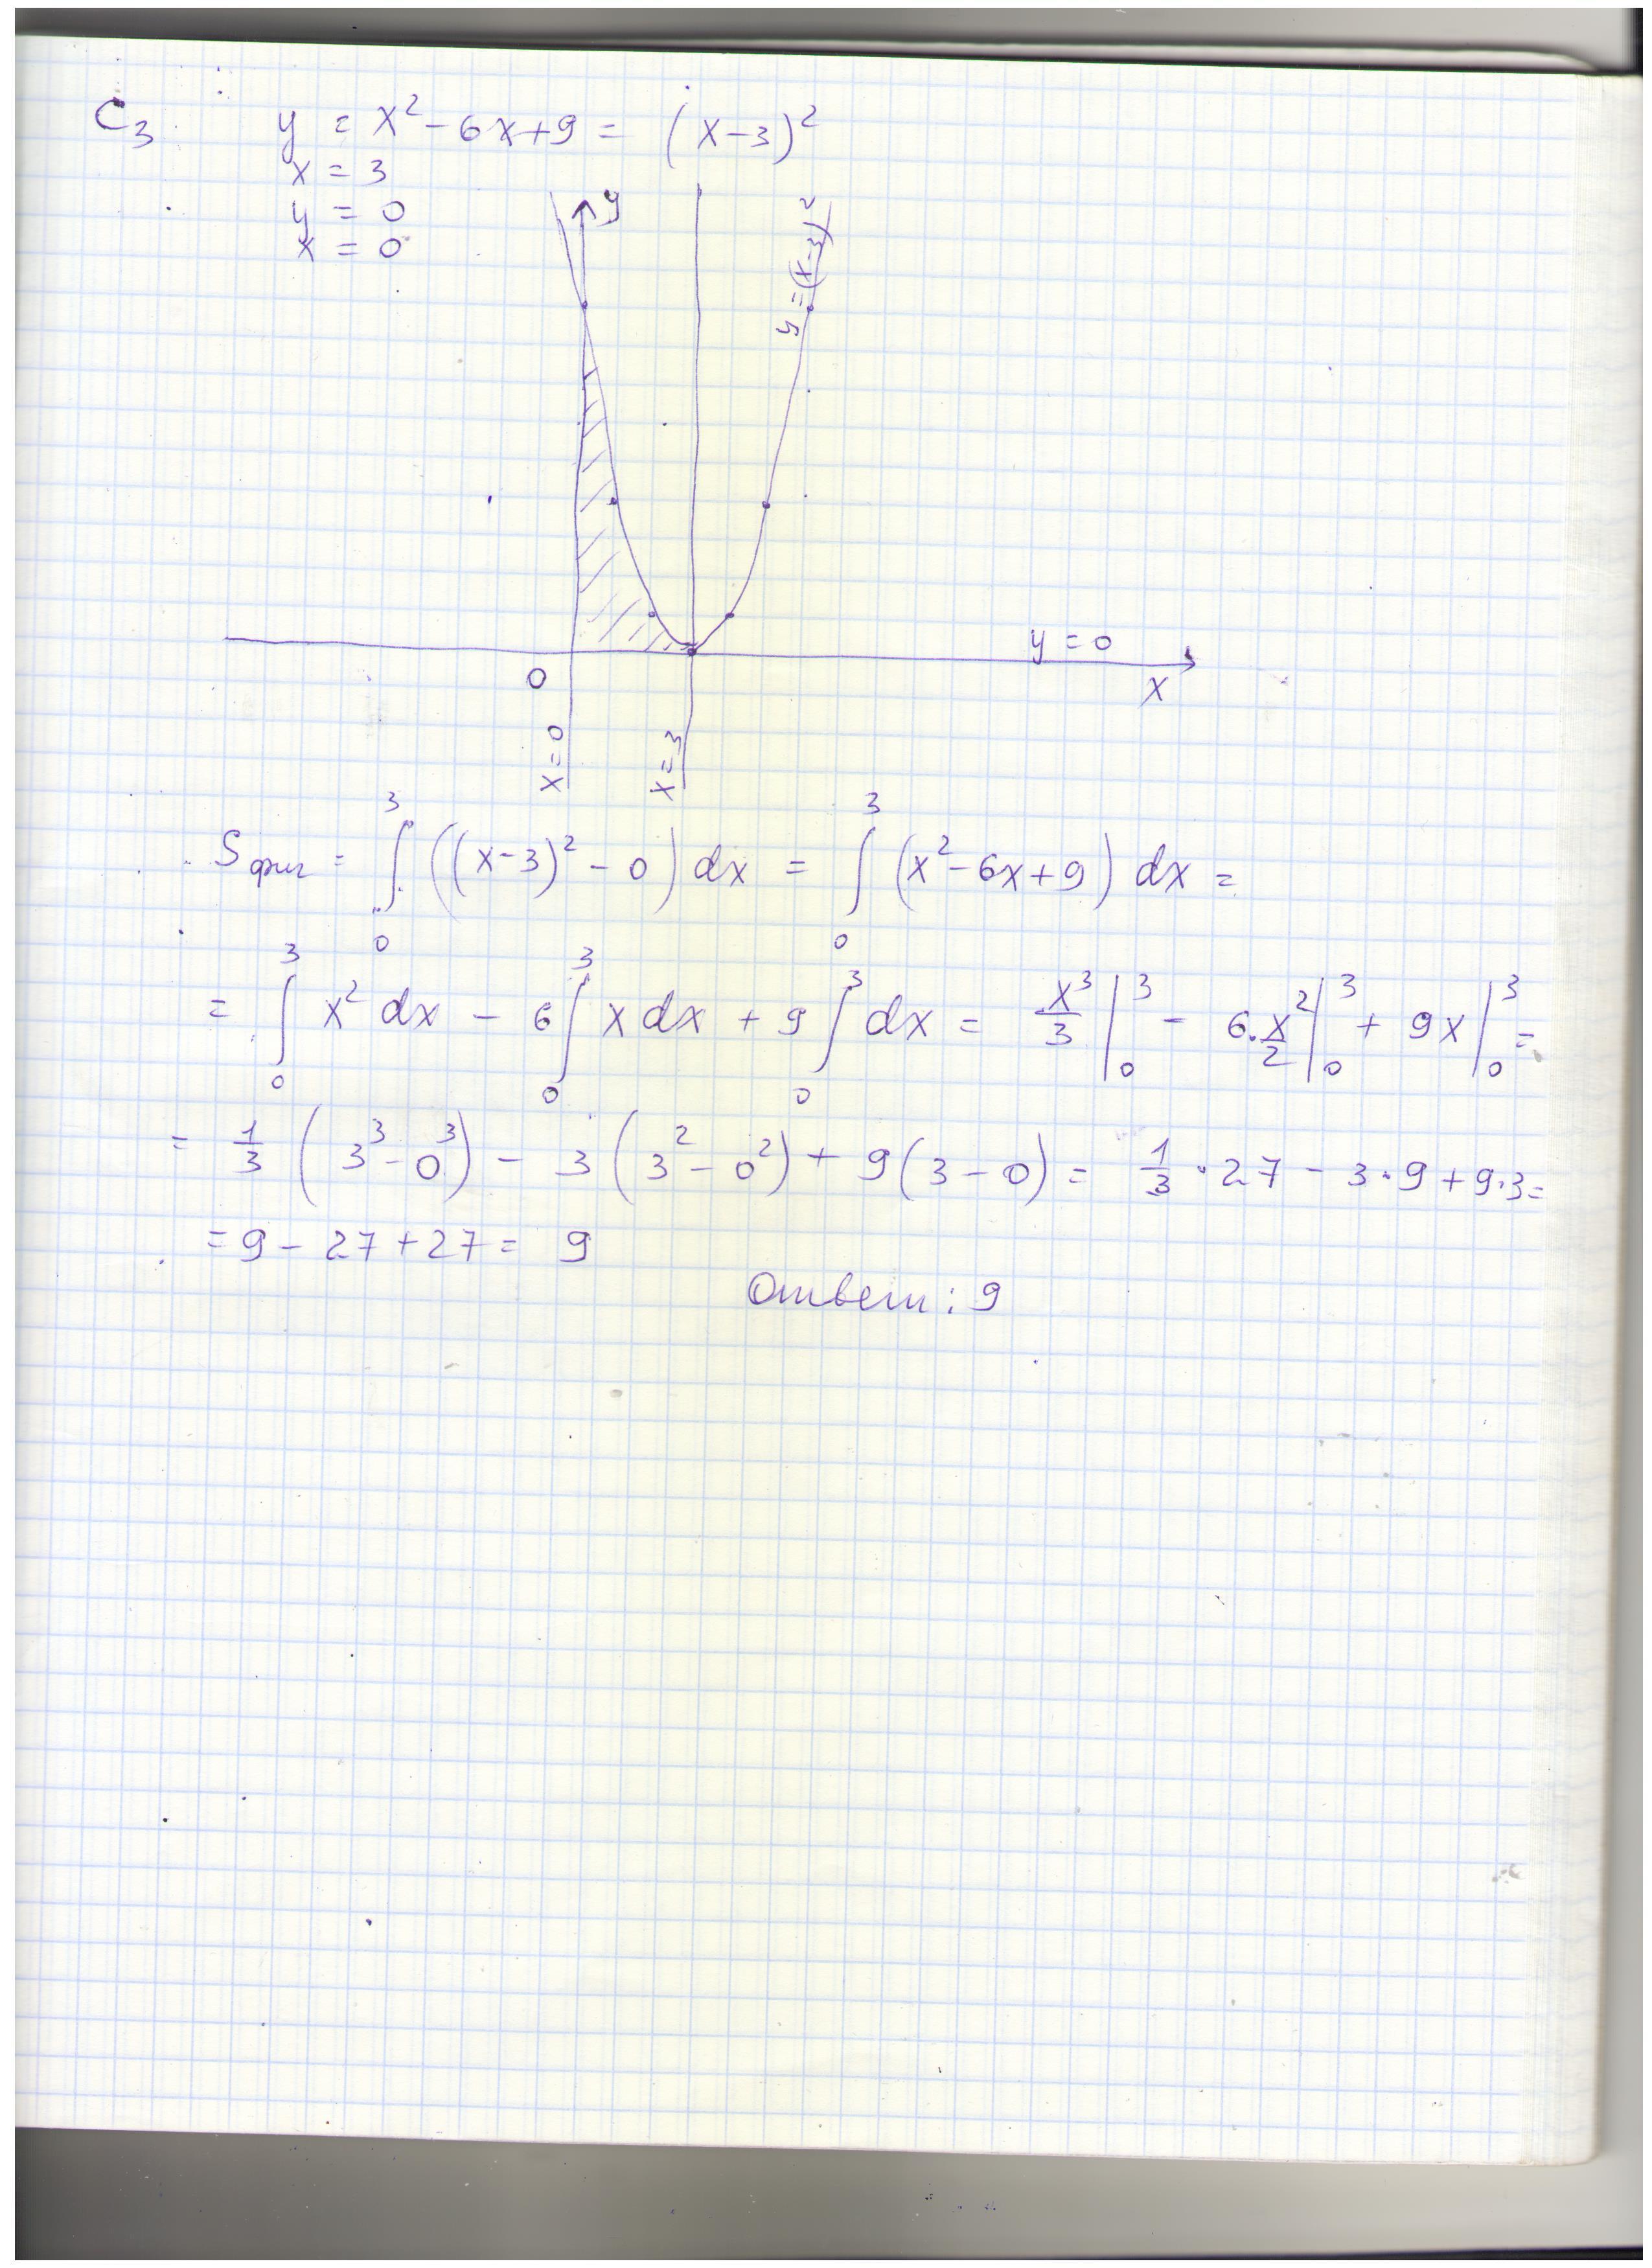 C₃ y = x² - 6x + 9 = (x - 3)²
x = 3
y = 0
x = 0
y
y = (x-3)²
y = 0
0
x
x = 0
x = 3
Sфиг = ∫₀³ ((x-3)² - 0) dx = ∫₀³ (x² - 6x + 9) dx =
= ∫₀³ x² dx - 6 ∫₀³ x dx + 9 ∫₀³ dx = x³/3 |₀³ - 6·x²/2 |₀³ + 9x |₀³ =
= 1/3 (3³ - 0³) - 3 (3² - 0²) + 9 (3 - 0) = 1/3 · 27 - 3·9 + 9·3 =
= 9 - 27 + 27 = 9
Ответ: 9